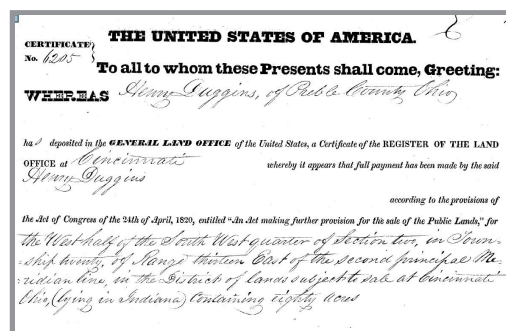 THE UNITED STATES OF AMERICA.
CERTIFICATE
No. 6205
To all to whom these Presents shall come, Greeting:
WHEREAS Henry Duggins, of Preble County Ohio
has deposited in the GENERAL LAND OFFICE of the United States, a Certificate of the REGISTER OF THE LAND
OFFICE at Cincinnati whereby it appears that full payment has been made by the said
Henry Duggins
according to the provisions of
the Act of Congress of the 24th of April, 1820, entitled "An Act making further provision for the sale of the Public Lands," for
the West half of the South West quarter of Section two, in Town-
-ship twenty, of Range thirteen East of the second principal Me-
-ridian line, in the District of lands subject to sale at Cincinnati
Ohio, (lying in Indiana) containing eighty acres